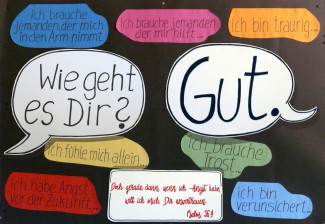 Ich brauche
jemanden der mich
in den Arm nimmt
Ich brauche jemanden
der mir hilft...
ich bin traurig...
Wie geht
es Dir?
Gut.
ich fühle mich allein...
ich brauche
Trost...
ich habe Angst
vor der Zukunft...
Doch gerade dann, wenn ich Angst habe,
will ich mich Dir anvertrauen.
Psalm 56,4
ich bin
verunsichert...